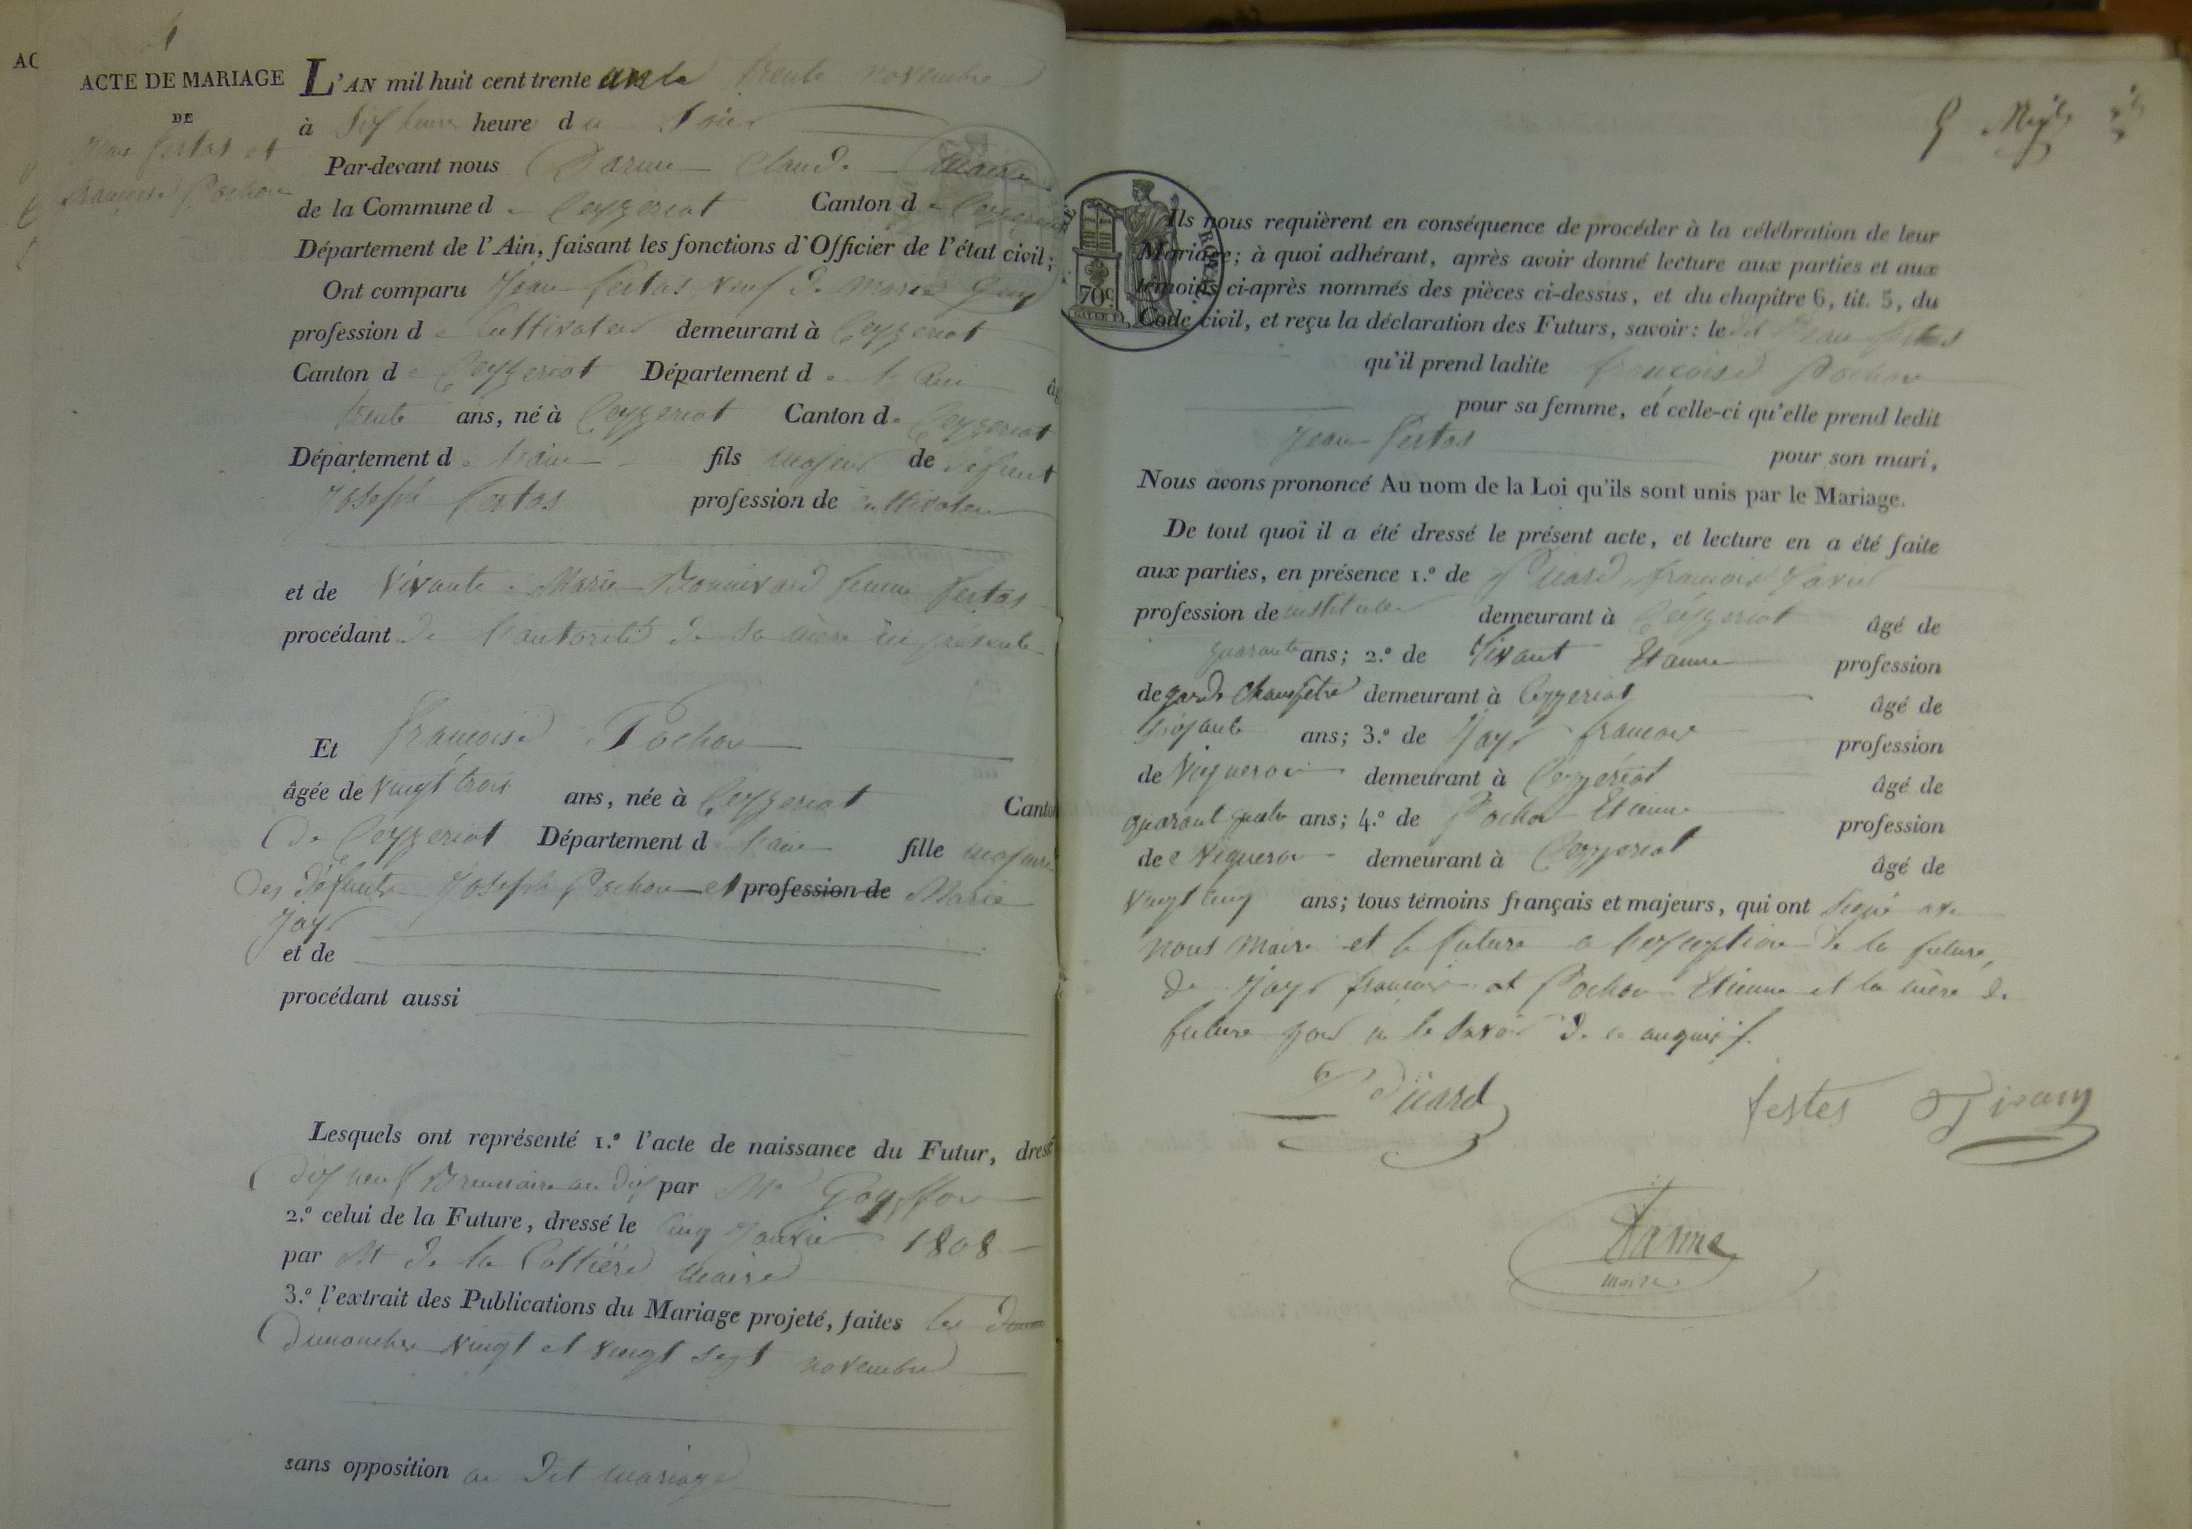 ACTE DE MARIAGE
DE
Jean Festas et
françoise Pochon
L'AN mil huit cent trente un le trente novembre
à dix heures heure du Soir
Par-devant nous Darme Claude Maire
de la Commune de Ceyzeriat Canton de Ceyzeriat
Département de l'Ain, faisant les fonctions d'Officier de l'état civil;
Ont comparu Jean festas veuf de Marie Guy
profession de Cultivateur demeurant à Ceyzeriat
Canton de Ceyzeriat Département de l'Ain âg
trente ans, né à Ceyzeriat Canton de Ceyzeriat
Département de l'ain fils majeur de défunt
Joseph festas profession de cultivateur
et de vivante Marie Bonnivard femme festas
procédant de l'autorité de sa mère ici présente
Et françoise Pochon
âgée de vingt trois ans, née à Ceyzeriat Canton
de Ceyzeriat Département de l'ain fille majeure
des défunts Joseph Pochon et profession de Marie
Jayr
et de
procédant aussi
Lesquels ont représenté 1.º l'acte de naissance du Futur, dressé
dix neuf Brumaire an dix par Mr Goyffon
2.º celui de la Future, dressé le cinq Janvier 1808
par Mr de la Cottière maire
3.º l'extrait des Publications du Mariage projeté, faites les deux
dimanches vingt et vingt sept novembre
sans opposition au dit mariage
70 c.
Ils nous requièrent en conséquence de procéder à la célébration de leur
Mariage; à quoi adhérant, après avoir donné lecture aux parties et aux
témoins ci-après nommés des pièces ci-dessus, et du chapître 6, tit. 5, du
Code civil, et reçu la déclaration des Futurs, savoir: le dit Jean festas
qu'il prend ladite françoise Pochon
pour sa femme, et celle-ci qu'elle prend ledit
Jean festas pour son mari,
Nous avons prononcé Au nom de la Loi qu'ils sont unis par le Mariage.
De tout quoi il a été dressé le présent acte, et lecture en a été faite
aux parties, en présence 1.º de Picard françois Xavier
profession de instituteur demeurant à Ceyzeriat âgé de
quarante ans; 2.º de Vivant Etienne profession
de garde champêtre demeurant à Ceyzeriat âgé de
soixante ans; 3.º de Jayr françois profession
de Vigneron demeurant à Ceyzériat âgé de
quarant quatre ans; 4.º de Pochon Etienne profession
de Vigneron demeurant à Ceyzeriat âgé de
vingt cinq ans; tous témoins français et majeurs, qui ont signé avec
nous maire et le futur a l'exception de la future,
de Jayr françois et Pochon Etienne et la mère de
future pour ne le savoir de ce enquis
Picard festas Vivant
Darme
maire